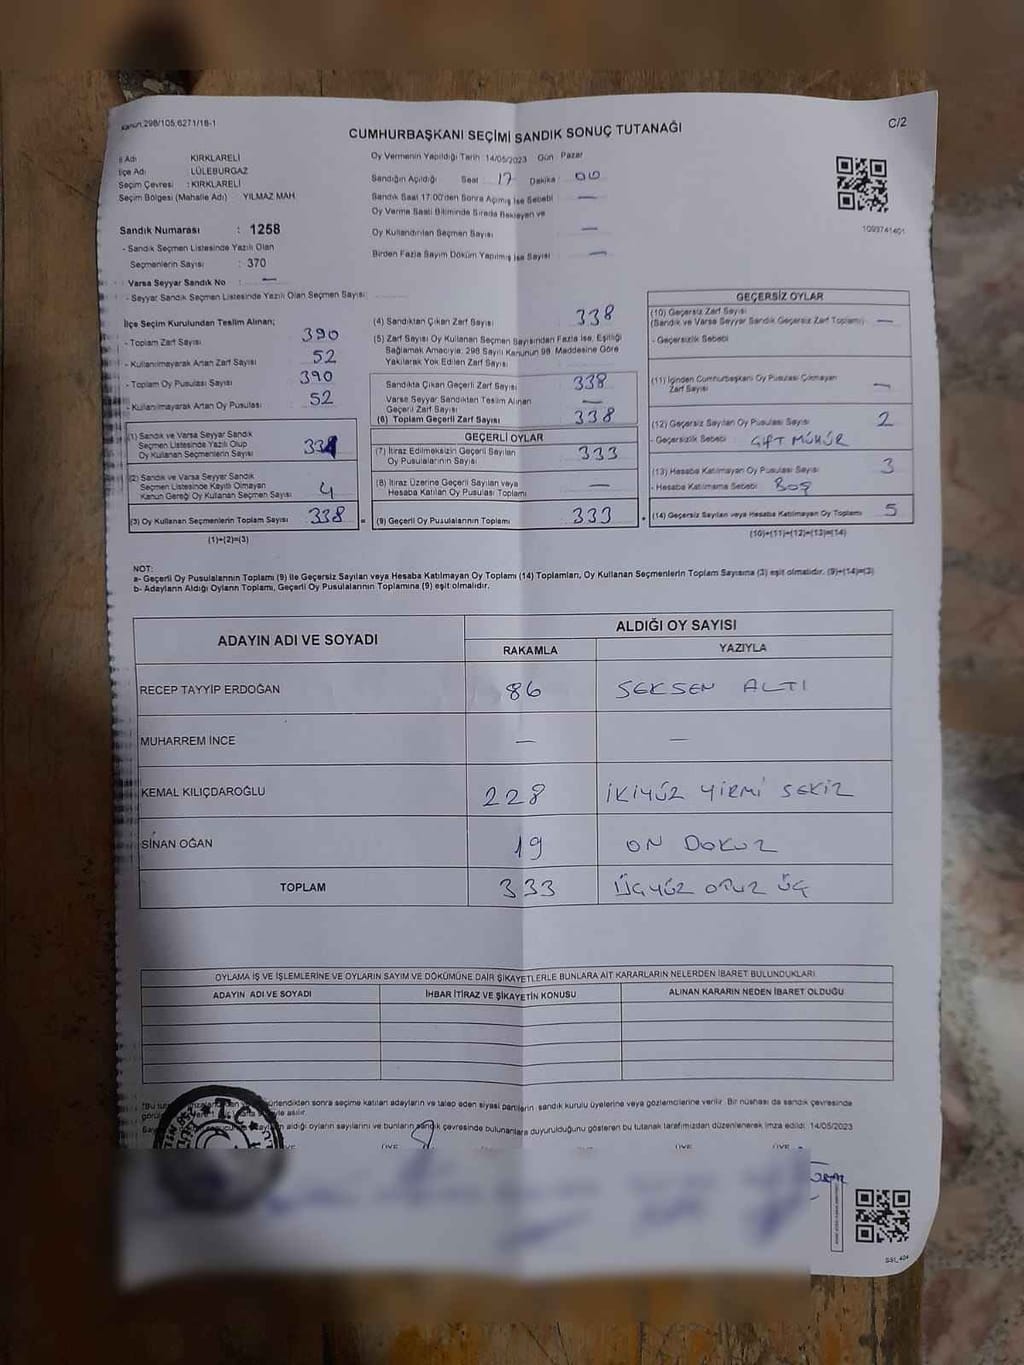 Kanun:298/105,6271/18-1
C/2
CUMHURBAŞKANI SEÇİMİ SANDIK SONUÇ TUTANAĞI
İl Adı KIRKLARELİ
İlçe Adı LÜLEBURGAZ
Seçim Çevresi : KIRKLARELİ
Seçim Bölgesi (Mahalle Adı) YILMAZ MAH.
Sandık Numarası : 1258
- Sandık Seçmen Listesinde Yazılı Olan
Seçmenlerin Sayısı : 370
Varsa Seyyar Sandık No : —
- Seyyar Sandık Seçmen Listesinde Yazılı Olan Seçmen Sayısı:
Oy Vermenin Yapıldığı Tarih 14/05/2023 Gün Pazar
Sandığın Açıldığı Saat 17 Dakika : 00
Sandık Saat 17:00'den Sonra Açılmış İse Sebebi —
Oy Verme Saati Bitiminde Sırada Bekleyen ve
Oy Kullandırılan Seçmen Sayısı —
Birden Fazla Sayım Döküm Yapılmış İse Sayısı —
1093741401
İlçe Seçim Kurulundan Teslim Alınan;
- Toplam Zarf Sayısı 390
- Kullanılmayarak Artan Zarf Sayısı 52
- Toplam Oy Pusulası Sayısı 390
- Kullanılmayarak Artan Oy Pusulası 52
(1) Sandık ve Varsa Seyyar Sandık
Seçmen Listesinde Yazılı Olup
Oy Kullanan Seçmenlerin Sayısı
(2) Sandık ve Varsa Seyyar Sandık
Seçmen Listesinde Kayıtlı Olmayan
Kanun Gereği Oy Kullanan Seçmen Sayısı 4
(3) Oy Kullanan Seçmenlerin Toplam Sayısı 338
(1)+(2)=(3)
(4) Sandıktan Çıkan Zarf Sayısı 338
(5) Zarf Sayısı Oy Kullanan Seçmen Sayısından Fazla İse, Eşitliği
Sağlamak Amacıyla, 298 Sayılı Kanunun 98. Maddesine Göre
Yakılarak Yok Edilen Zarf Sayısı
Sandıkta Çıkan Geçerli Zarf Sayısı 338
Varsa Seyyar Sandıktan Teslim Alınan
Geçerli Zarf Sayısı —
(6) Toplam Geçerli Zarf Sayısı 338
GEÇERLİ OYLAR
(7) İtiraz Edilmeksizin Geçerli Sayılan
Oy Pusulalarının Sayısı 333
(8) İtiraz Üzerine Geçerli Sayılan veya
Hesaba Katılan Oy Pusulası Toplamı —
= (9) Geçerli Oy Pusulalarının Toplamı 333
GEÇERSİZ OYLAR
(10) Geçersiz Zarf Sayısı
(Sandık ve Varsa Seyyar Sandık Geçersiz Zarf Toplamı) —
- Geçersizlik Sebebi
(11) İçinden Cumhurbaşkanı Oy Pusulası Çıkmayan
Zarf Sayısı —
(12) Geçersiz Sayılan Oy Pusulası Sayısı 2
- Geçersizlik Sebebi ÇİFT MÜHÜR
(13) Hesaba Katılmayan Oy Pusulası Sayısı 3
- Hesaba Katılmama Sebebi BOŞ
+ (14) Geçersiz Sayılan veya Hesaba Katılmayan Oy Toplamı 5
(10)+(11)+(12)+(13)=(14)
NOT:
a- Geçerli Oy Pusulalarının Toplamı (9) ile Geçersiz Sayılan veya Hesaba Katılmayan Oy Toplamı (14) Toplamları, Oy Kullanan Seçmenlerin Toplam Sayısına (3) eşit olmalıdır. (9)+(14)=(3)
b- Adayların Aldığı Oyların Toplamı, Geçerli Oy Pusulalarının Toplamına (9) eşit olmalıdır.
ADAYIN ADI VE SOYADI ALDIĞI OY SAYISI
RAKAMLA YAZIYLA
RECEP TAYYİP ERDOĞAN 86 SEKSEN ALTI
MUHARREM İNCE — —
KEMAL KILIÇDAROĞLU 228 İKİYÜZ YİRMİ SEKİZ
SİNAN OĞAN 19 ON DOKUZ
TOPLAM 333 ÜÇYÜZ OTUZ ÜÇ
OYLAMA İŞ VE İŞLEMLERİNE VE OYLARIN SAYIM VE DÖKÜMÜNE DAİR ŞİKAYETLERLE BUNLARA AİT KARARLARIN NELERDEN İBARET BULUNDUKLARI
ADAYIN ADI VE SOYADI İHBAR İTİRAZ VE ŞİKAYETİN KONUSU ALINAN KARARIN NEDEN İBARET OLDUĞU
sonra seçime katılan adayların ve talep eden siyasi partilerin sandık kurulu üyelerine veya gözlemcilerine verilir. Bir nüshası da sandık çevresinde
asılır.
aldığı oyların sayılarını ve bunların sandık çevresinde bulunanlara duyurulduğunu gösteren bu tutanak tarafımızdan düzenlenerek imza edildi. 14/05/2023
ÜYE ÜYE ÜYE
T.C.